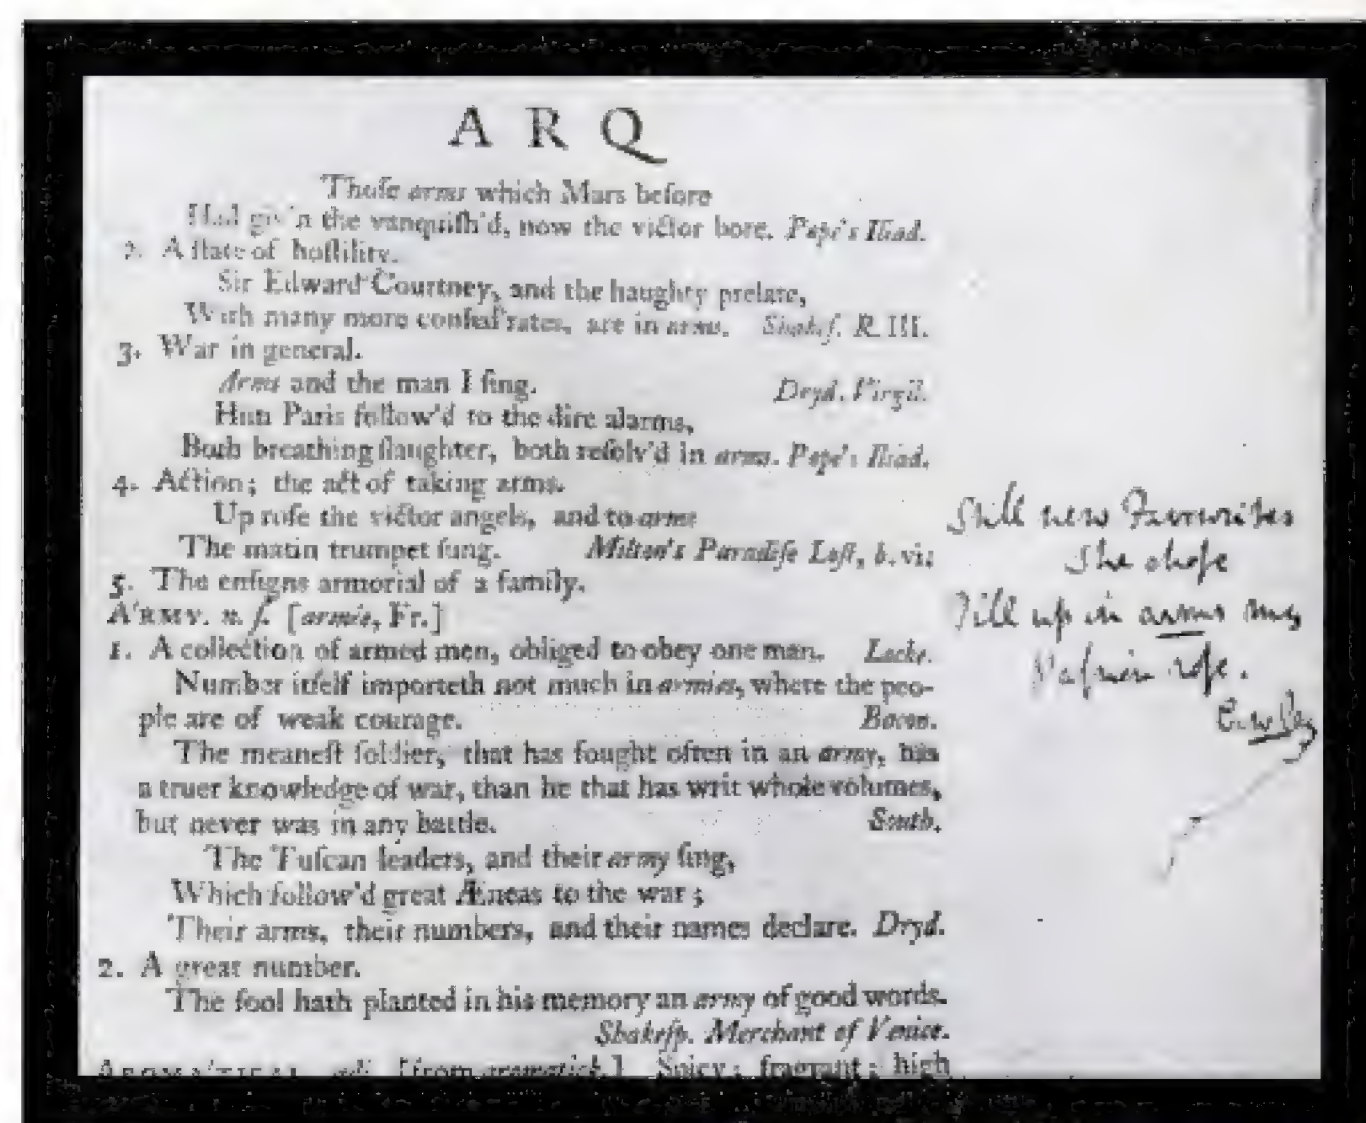 A R Q
Thoſe arms which Mars before
Had giv'n the vanquiſh'd, now the victor bore. Pope's Iliad.
2. A ſtate of hoſtility.
Sir Edward Courtney, and the haughty prelate,
With many more confed'rates, are in arms. Shakeſ. R. III.
3. War in general.
Arms and the man I ſing. Dryd. Virgil.
Him Paris follow'd to the dire alarms,
Both breathing ſlaughter, both reſolv'd in arms. Pope's Iliad.
4. Action; the act of taking arms.
Up roſe the victor angels, and to arms
The matin trumpet ſung. Milton's Paradiſe Loſt, b. vi.
5. The enſigns armorial of a family.
A'RMY. n. ſ. [armée, Fr.]
1. A collection of armed men, obliged to obey one man. Locke.
Number itſelf importeth not much in armies, where the peo-
ple are of weak courage. Bacon.
The meaneſt ſoldier, that has fought often in an army, has
a truer knowledge of war, than he that has writ whole volumes,
but never was in any battle. South.
The Tuſcan leaders, and their army ſing,
Which follow'd great Æneas to the war;
Their arms, their numbers, and their names declare. Dryd.
2. A great number.
The fool hath planted in his memory an army of good words.
Shakeſp. Merchant of Venice.
[from aromatick.] Spicy; fragrant; high
Still new Favourites
She choſe
Till up in arms my
Paſsion roſe.
Cowley